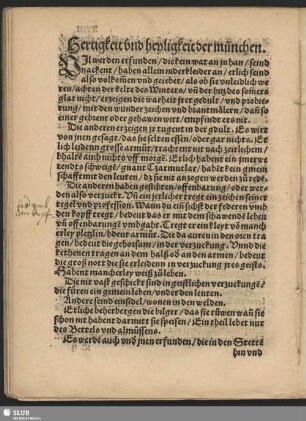 Hertigkeit vnd heyligkeit der münchen.
Vil werden erfunden / die kein wat an jn han / seind
nackent / haben allein niderkleider an / etlich seind
also volkomen vnd geiebet / als ob sie vnleidlich we
ren / achten der kelte des Winters / vn̄ der hitz des somers
glar nicht / erzeigen die warheit jrer gedult / vnd probie-
rung / mit den wunder zeichen vnd blautmälern / dan̄ so
einer gehawen oder gehawen wirt / empfindt ers nit.
Die anderen erzeigen jr tugent in der gdult. Es wirt
von jnen gesagt / das sie selten essen / oder gar nichts. Et
lich leiden grosse armüt / trachtent nit nach zeitlichem /
bhalts auch nichts vff morgē. Etlich habent ein jmerwe
rendts schweigē / gnant Czarnuclar / habēt kein gmein
schafft mit den leuten / dz sie nit anzogen werden zů redē.
Die anderen haben gesichten / offenbarung / oder wer-
den also verzuckt. Vn̄ ein jetlicher tregt ein zeichen seiner
regel vnd profession. Wann du ein sichst der federen vmb
den kopff tregt / bedeut das er mit dem schawendē leben
vn̄ offenbarungē vmbgaht. Tregt er ein kleyt võ manch
erley pletzlin / bedeut armůt. Die da aurein in den oren tra
gen / bedeut die gehorsam / in der verzuckung. Vnnd die
kethenen tragen an dem halß ob an den armen / bedeut
die groß not die sie erleiden in verzuckung jres geists.
Habent mancherley weiß zů leben.
Die mit vast geschickt sind in geistlichen verzuckungē /
die fůren ein gemein leben / vnder den leuten.
Andere seind einsidel / wonen in den welden.
Etliche beherbergen die bilger / das sie rüwen wan̄ sie
schon nit habent darmitt sie speisen / Ein theil lebet nur
des Bettels vnd almůssens.
Es werdē auch vnd jnen erfunden / die in den Stette
hin vnd
SLUB